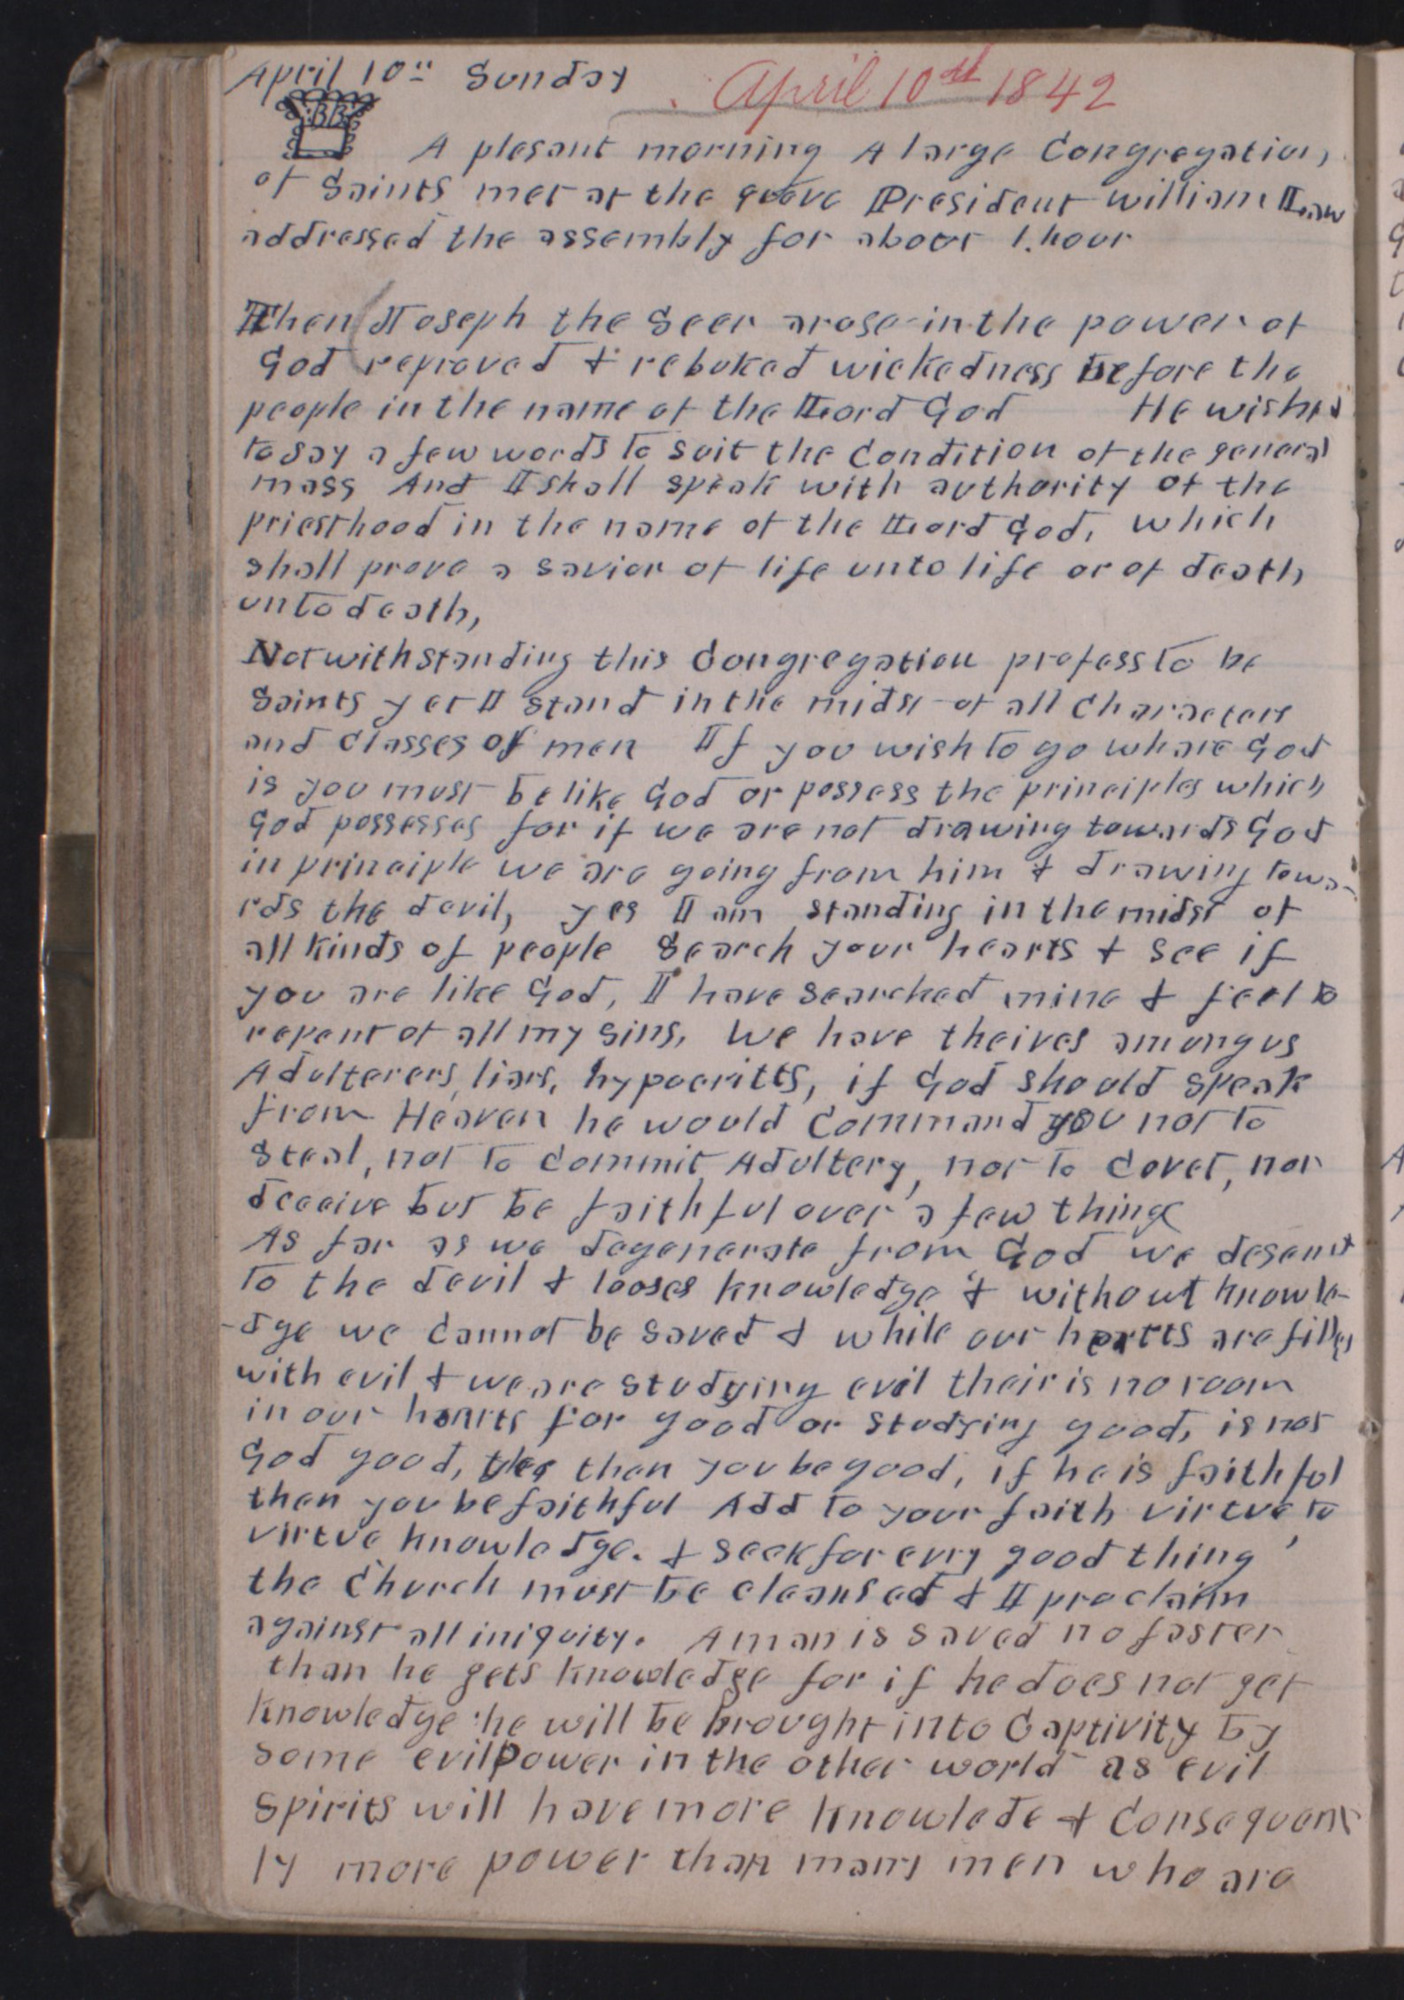 April 10th Sunday
April 10th 1842
BB
A plesant morning A large Congregation,
of Saints met at the grove President William Law
addressed the assembly for about 1. hour
Then Joseph the Seer arose in the power of
God reproved & rebuked wickedness before the
people in the name of the Lord God He wished
to say a few words to suit the Condition of the general
mass And I shall speak with authority of the
priesthood in the name of the Lord God, which
shall prove a savior of life unto life or of death
unto death,
Notwithstanding this Congregation profess to be
Saints yet I stand in the midst of all characters
and classes of men If you wish to go whare God
is you must be like God or possess the principles which
God possesses for if we are not drawing towards God
in principle we are going from him & drawing towa-
rds the devil, yes I am standing in the midst of
all kinds of people Search your hearts & see if
you are like God, I have searched mine & feel to
repent of all my sins, We have theives among us
Adulterers, liars, hypocritts, if God should speak
from Heaven he would Command you not to
steal, not to Commit Adultery, nor to Covet, nor
deceive but be faithful over a few things
As far as we degenerate from God we desend
to the devil & looses knowledge & without knowle-
-dge we Cannot be saved & while our hearts are filled
with evil & we are studying evil their is no room
in our hearts for good or studying good, is not
God good, Yes then you be good, if he is faithful
then you be faithful Add to your faith virtue to
virtue knowledge. & seek for evry good thing
the Church must be cleansed & I proclaim
against all iniquity. A man is saved no faster
than he gets knowledge for if he does not get
knowledge he will be brought into Captivity by
some evil power in the other world as evil
spirits will have more knowlede & Consequent
ly more power than many men who are